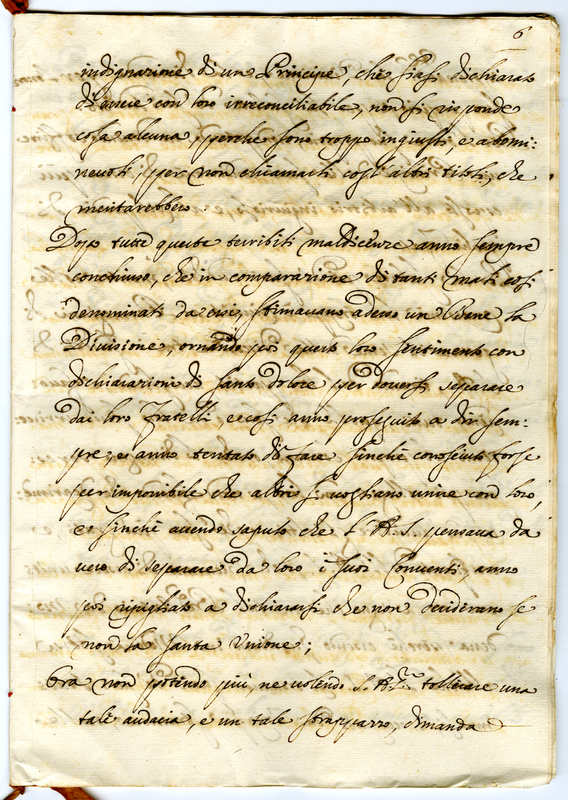 6
indignazione di un Principe, che siasi dichiarato
di avere con loro irreconciliabile, non si risponde
cosa alcuna, perche sono troppo ingiusti, e abomi-
nevoli, per non chiamarli cogl'altri titoli, che
meritarebbero.
Dopo tutte queste terribili maldicenze anno sempre
conchiuso, che in comparazione di tanti mali cosi
denominati da essi, stimavano adesso un Bene la
Divisione, ornando poi questo loro sentimento con
dichiarazioni di santo dolore per doversi separare
dai loro Fratelli, e cosi anno proseguito a dir sem:
pre, e anno tentato di fare sinche conosciuto forse
per impossibile che altri si vogliano unire con loro,
e sinche avendo saputo che S. A. S. pensava da
vero di separare da loro i suoi Conventi, anno
poi ripigliato a dichiararsi che non desiderano se
non la santa Unione;
Ora non potendo più, ne volendo S. A. tollerare una
tale audacia, e un tale strapazzo, dimanda